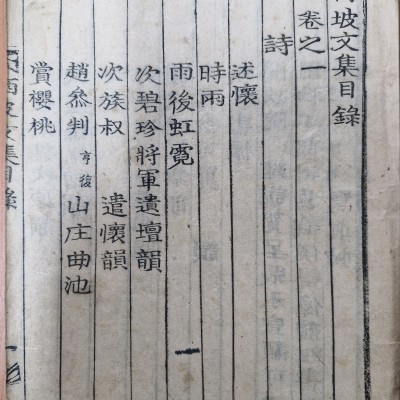 坡文集目錄
卷之一
詩
述懷
時雨
雨後虹霓
次碧珍將軍遺壇韻
次族叔 遣懷韻
趙參判亨復山庄曲池
賞櫻桃
坡文集目錄 一